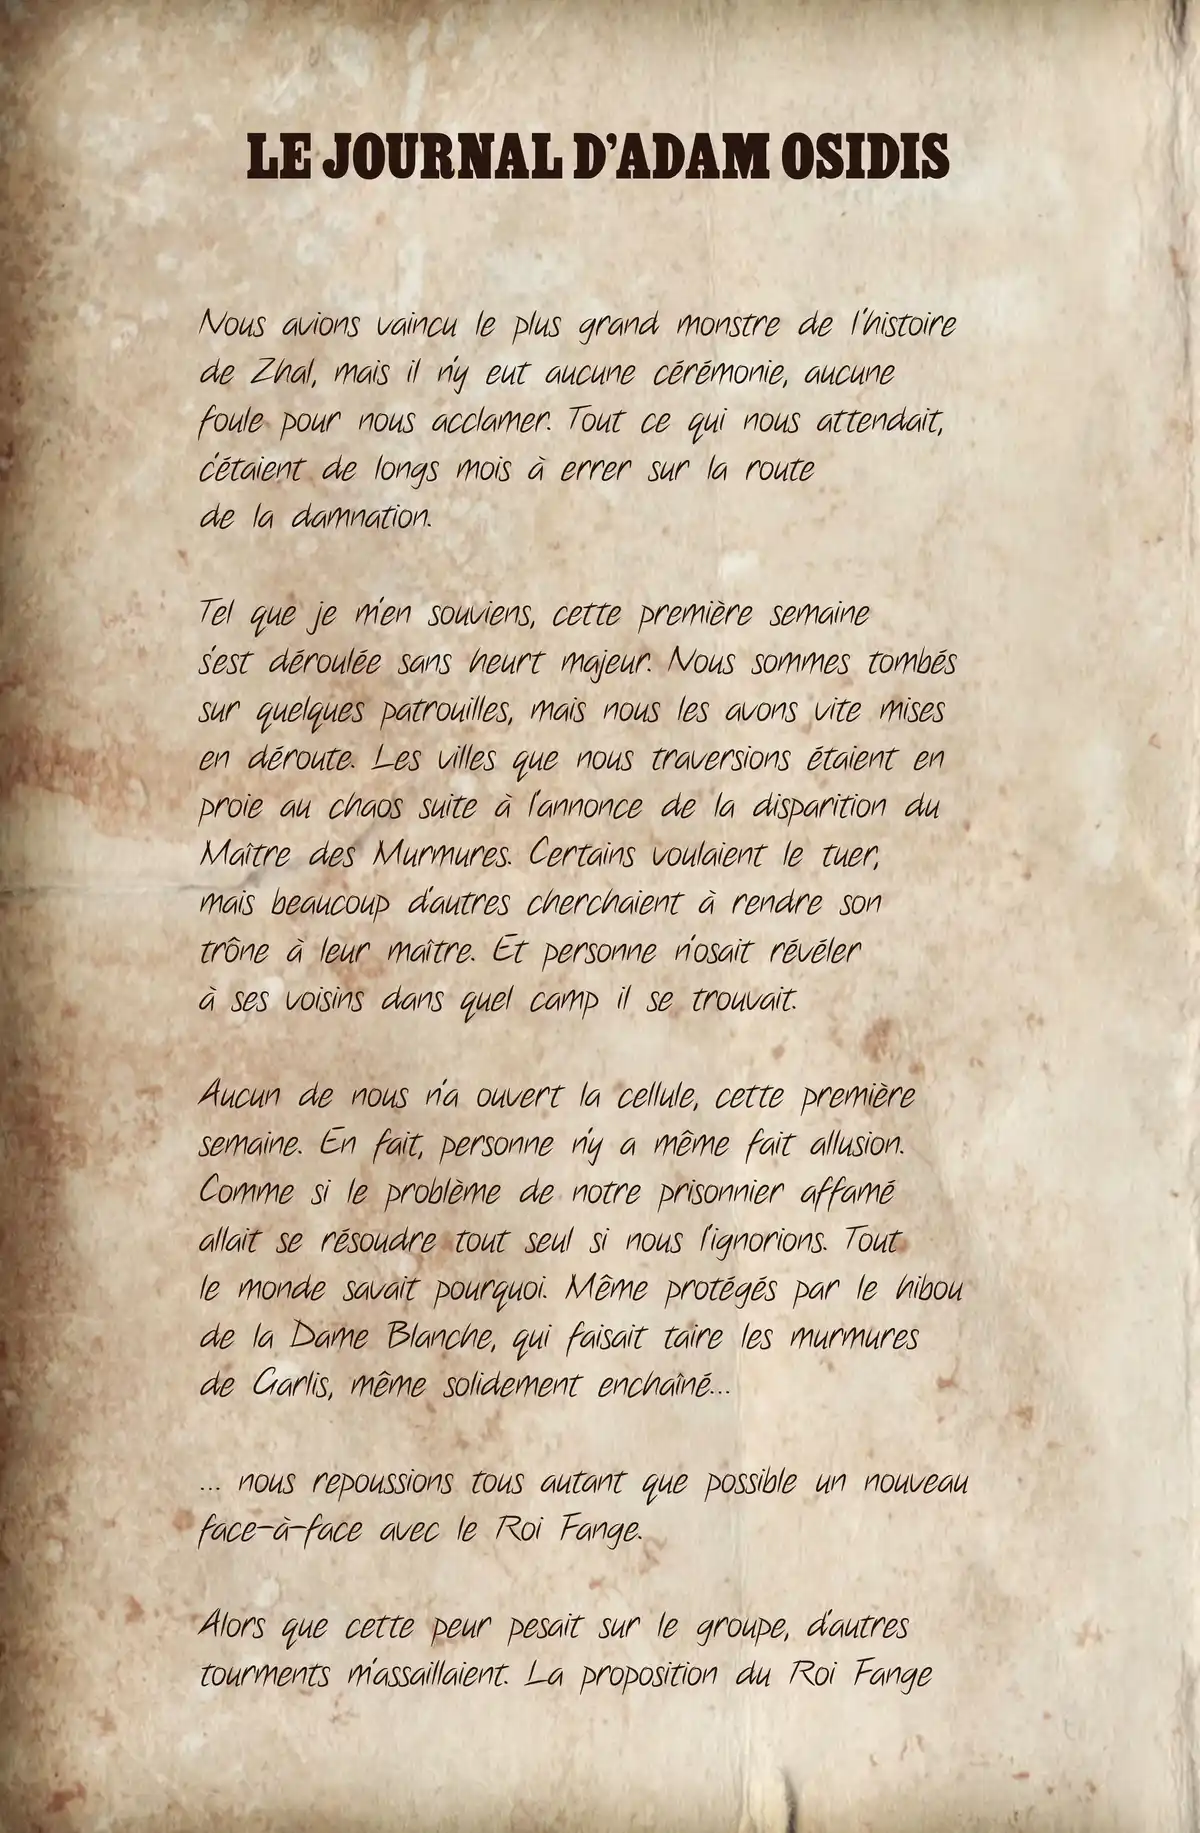 LE JOURNAL D'ADAM OSIDIS
Nous avions vaincu le plus grand monstre de l'histoire
de Zhal, mais il n'y eut aucune cérémonie, aucune
foule pour nous acclamer. Tout ce qui nous attendait,
c'étaient de longs mois à errer sur la route
de la damnation.
Tel que je m'en souviens, cette première semaine
s'est déroulée sans heurt majeur. Nous sommes tombés
sur quelques patrouilles, mais nous les avons vite mises
en déroute. Les villes que nous traversions étaient en
proie au chaos suite à l'annonce de la disparition du
Maître des Murmures. Certains voulaient le tuer,
mais beaucoup d'autres cherchaient à rendre son
trône à leur maître. Et personne n'osait révéler
à ses voisins dans quel camp il se trouvait.
Aucun de nous n'a ouvert la cellule, cette première
semaine. En fait, personne n'y a même fait allusion.
Comme si le problème de notre prisonnier affamé
allait se résoudre tout seul si nous l'ignorions. Tout
le monde savait pourquoi. Même protégés par le hibou
de la Dame Blanche, qui faisait taire les murmures
de Garlis, même solidement enchaîné...
... nous repoussions tous autant que possible un nouveau
face-à-face avec le Roi Fange.
Alors que cette peur pesait sur le groupe, d'autres
tourments m'assaillaient. La proposition du Roi Fange